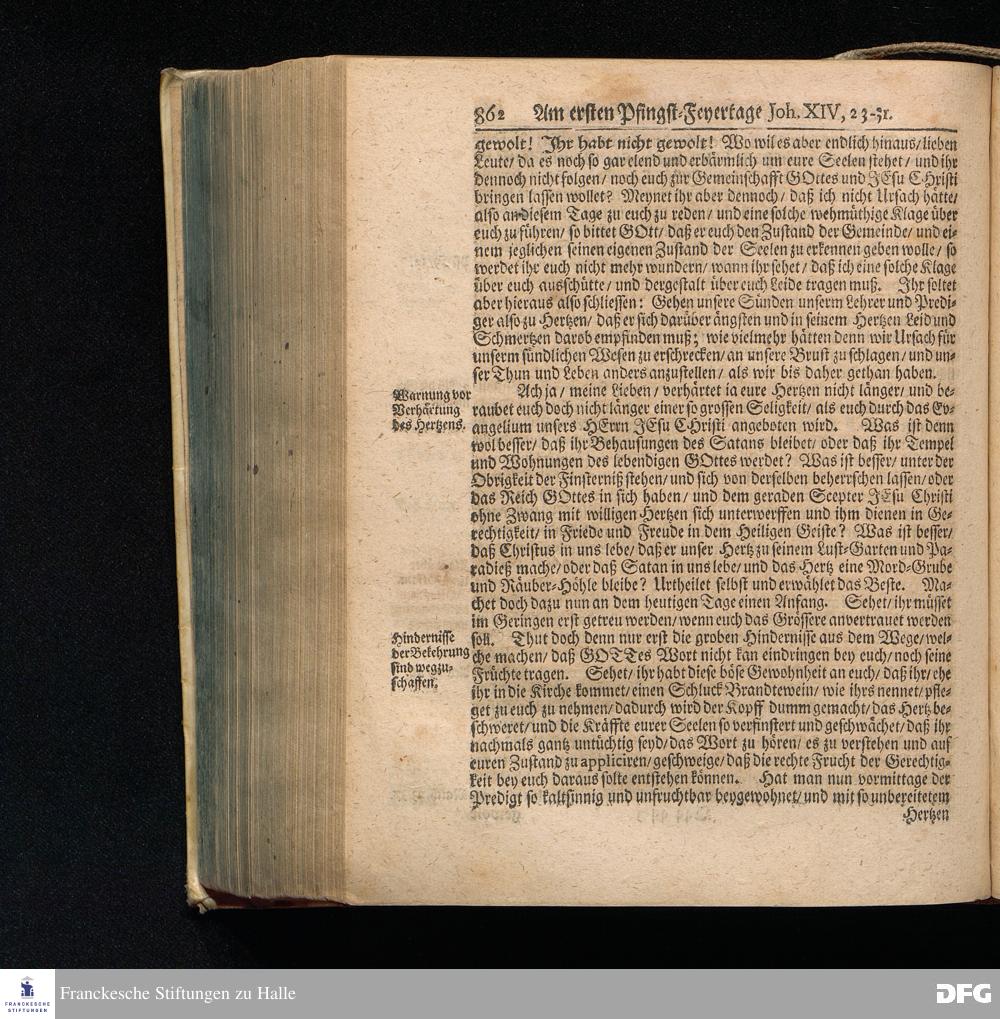 862 Am ersten Pfingst-Feyertage Joh. XIV, 23-31.
gewolt! Ihr habt nicht gewolt! Wo wil es aber endlich hinaus/ lieben
Leute/ da es noch so gar elend und erbärmlich um eure Seelen stehet/ und ihr
dennoch nicht folgen/ noch euch zur Gemeinschafft GOttes und JEsu CHristi
bringen lassen wollet? Meynet ihr aber dennoch/ daß ich nicht Ursach hätte/
also an diesem Tage zu euch zu reden/ und eine solche wehmüthige Klage über
euch zu führen/ so bittet GOtt/ daß er euch den Zustand der Gemeinde/ und ei-
nem jeglichen seinen eigenen Zustand der Seelen zu erkennen geben wolle/ so
werdet ihr euch nicht mehr wundern/ wann ihr sehet/ daß ich eine solche Klage
über euch ausschütte/ und dergestalt über euch Leide tragen muß. Ihr soltet
aber hieraus also schliessen: Gehen unsere Sünden unserm Lehrer und Predi-
ger also zu Hertzen/ daß er sich darüber ängsten und in seinem Hertzen Leid und
Schmertzen darob empfinden muß; wie vielmehr hätten denn wir Ursach für
unserm sündlichen Wesen zu erschrecken/ an unsere Brust zu schlagen/ und un-
ser Thun und Leben anders anzustellen/ als wir bis daher gethan haben.
Warnung vor
Verhärtung
des Hertzens.
Ach ja/ meine Lieben/ verhärtet ia eure Hertzen nicht länger/ und be-
raubet euch doch nicht länger einer so grossen Seligkeit/ als euch durch das Ev-
angelium unsers HErrn JEsu CHristi angeboten wird. Was ist denn
wol besser/ daß ihr Behausungen des Satans bleibet/ oder daß ihr Tempel
und Wohnungen des lebendigen GOttes werdet? Was ist besser/ unter der
Obrigkeit der Finsterniß stehen/ und sich von derselben beherrschen lassen/ oder
das Reich GOttes in sich haben/ und dem geraden Scepter JEsu Christi
ohne Zwang mit willigen Hertzen sich unterwerffen und ihm dienen in Ge-
rechtigkeit/ in Friede und Freude in dem Heiligen Geiste? Was ist besser/
daß Christus in uns lebe/ daß er unser Hertz zu seinem Lust-Garten und Pa-
radieß mache/ oder daß Satan in uns lebe/ und das Hertz eine Mord-Grube
und Räuber-Höhle bleibe? Urtheilet selbst und erwählet das Beste. Ma-
chet doch dazu nun an dem heutigen Tage einen Anfang. Sehet/ ihr müsset
im Geringen erst getreu werden/ wenn euch das Grössere anvertrauet werden
soll. Thut doch denn nur erst die groben Hindernisse aus dem Wege/ wel-
Hindernisse
der Bekehrung
sind wegzu-
schaffen.
che machen/ daß GOTTes Wort nicht kan eindringen bey euch/ noch seine
Früchte tragen. Sehet/ ihr habt diese böse Gewohnheit an euch/ daß ihr/ ehe
ihr in die Kirche kommet/ einen Schluck Brandtewein/ wie ihrs nennet/ pfle-
get zu euch zu nehmen/ dadurch wird der Kopff dumm gemacht/ das Hertz be-
schweret/ und die Kräffte eurer Seelen so verfinstert und geschwächet/ daß ihr
nachmals gantz untüchtig seyd/ das Wort zu hören/ es zu verstehen und auf
euren Zustand zu appliciren/ geschweige/ daß die rechte Frucht der Gerechtig-
keit bey euch daraus solte entstehen können. Hat man nun vormittage der
Predigt so kaltsinnig und unfruchtbar beygewohnet/ und mit so unbereitetem
Hertzen
FRANCKESCHE
STIFTUNGEN
Franckesche Stiftungen zu Halle
DFG